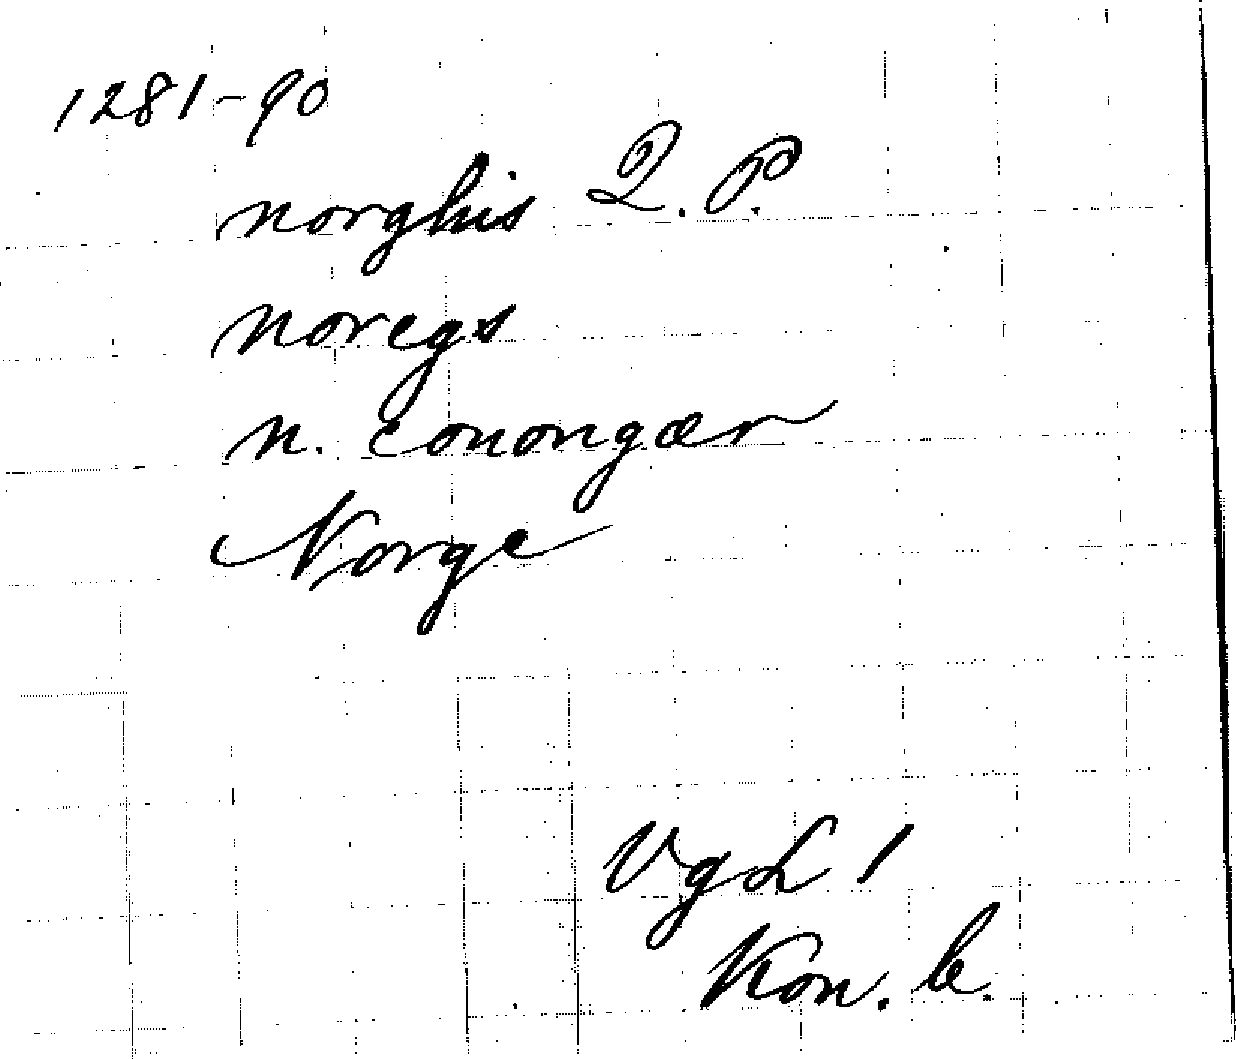 1281-90
norghis L. P.
noregs
n. conongær
Norge
VgL 1
Kon. b.